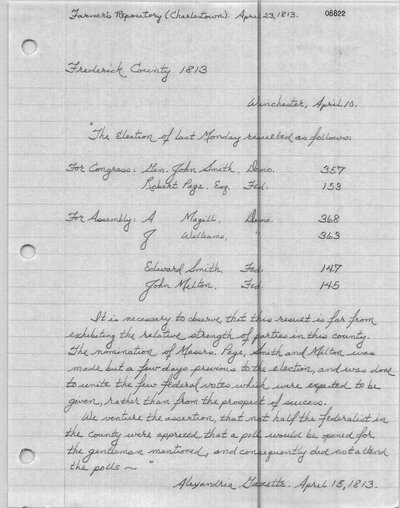 Farmer's Repository (Charlestown). April 23, 1813. 08822
Frederick County 1813
Winchester, April 10.
"The Election of last Monday resulted as follows:
For Congress: Gen. John Smith, Demo. 357
Robert Page. Esq. Fed. 153
For Assembly: A Magill, Demo. 368
J Williams, " 363
Edward Smith, Fed. 147
John Milton, Fed. 145
It is necessary to observe, that this result is far from
exhibiting the relative strength of parties in this county.
The nomination of Messrs. Page, Smith and Milton was
made but a few days previous to the election, and was done
to unite the few federal votes which were expected to be
given, rather than from the prospect of success.
We venture the assertion, that not half the federalist in
the county were apprized that a poll would be opened for
the gentleman mentioned, and consequently did not attend
the polls ~ "
Alexandria Gazette. April 15, 1813.